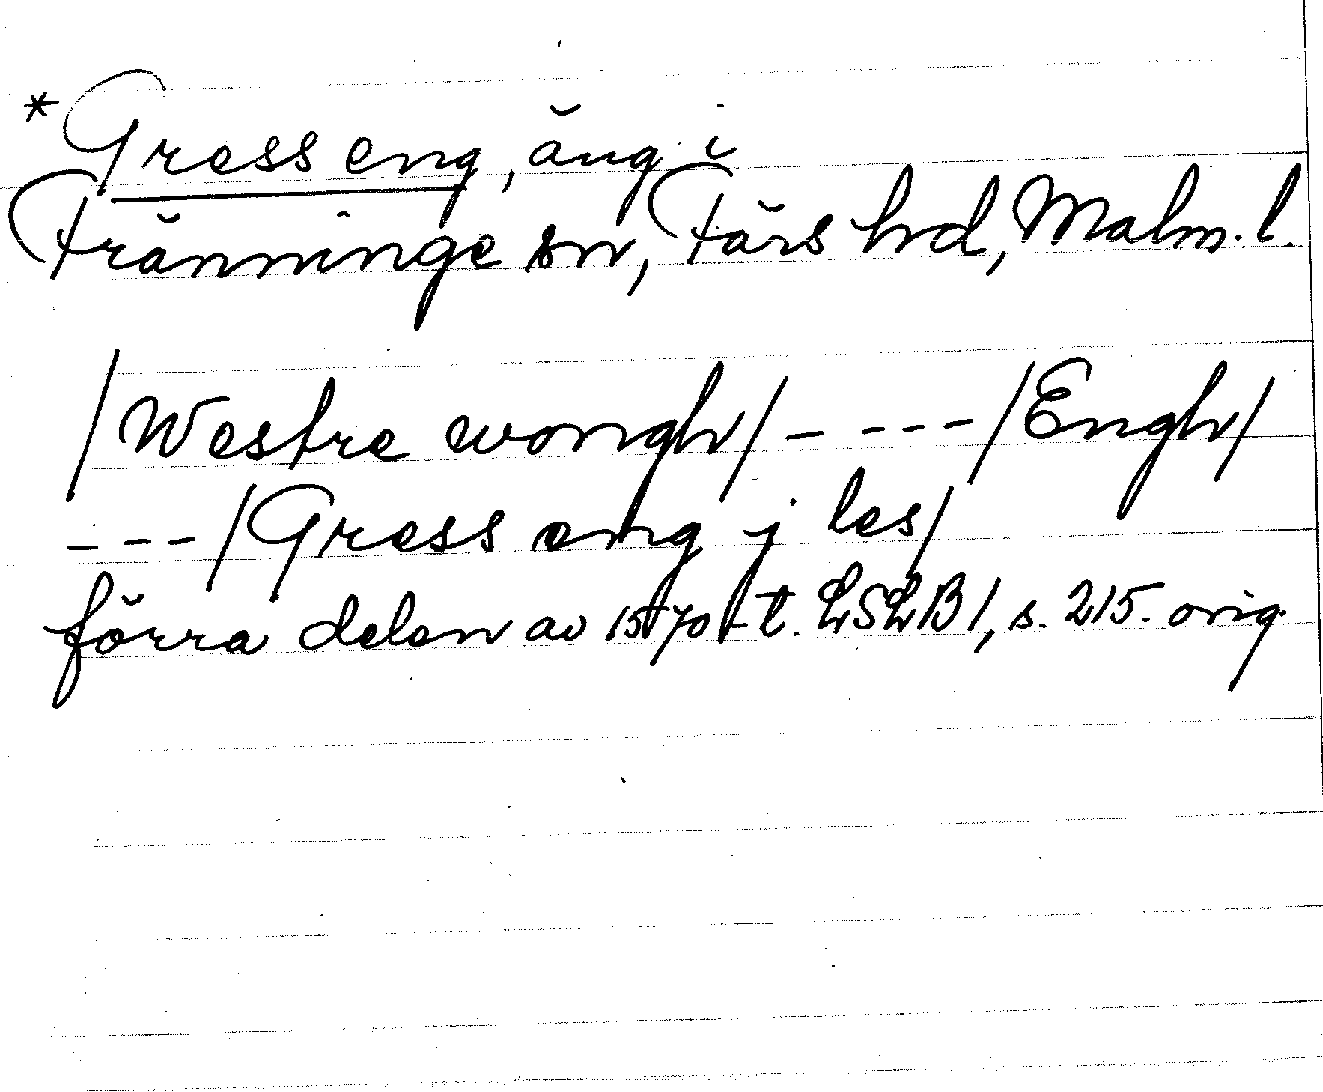 *Gress eng, äng i
Fränninge sn, Färs hd, Malm. l.
/Westre wongh/ - - - - /Engh/
- - - /Gress eng j les/
förra delen av 1570-t. LSLB 1, s. 215. orig.